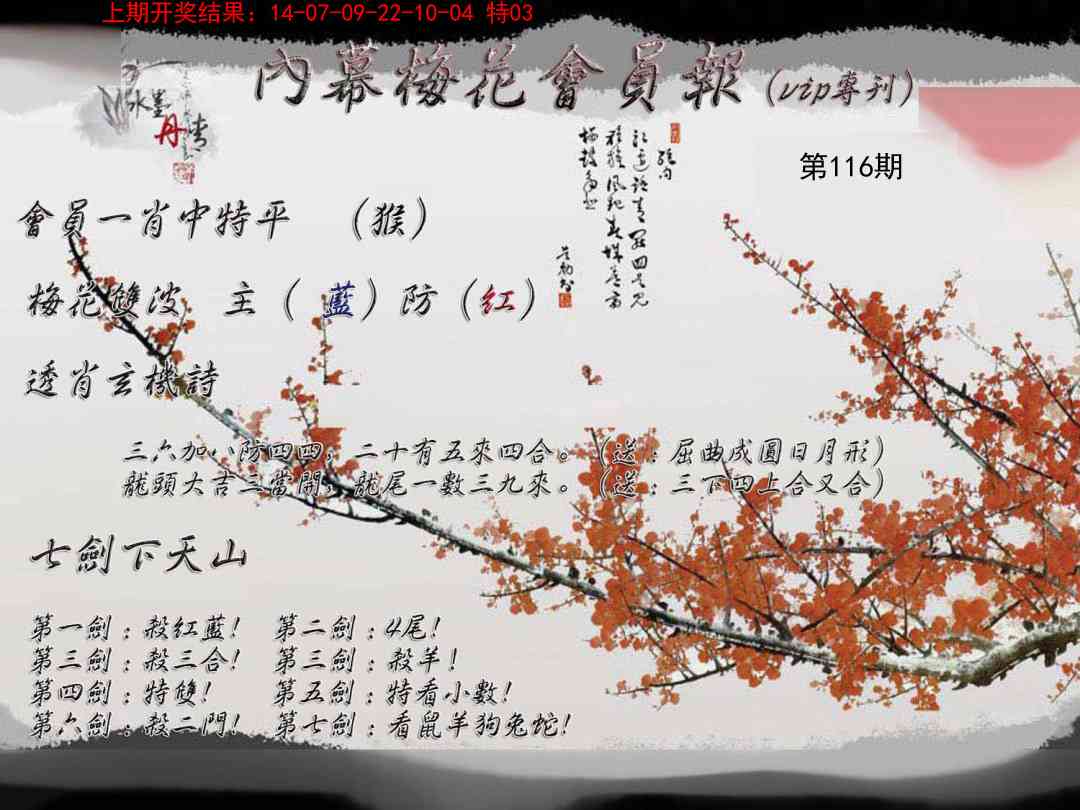 上期开奖结果：14-07-09-22-10-04 特03
內幕梅花會員報（vip專刊）
水墨
丹情
第116期
會員一肖中特平 （猴）
梅花雙波 主（藍）防（紅）
透肖玄機詩
三六加八防四四，二十有五來四合。（送：屈曲成圓日月形）
龍頭大吉三當開，龍尾一數三九來。（送：三下四上合又合）
七劍下天山
第一劍：殺紅藍! 第二劍：4尾!
第三劍：殺三合! 第三劍：殺羊!
第四劍：特雙! 第五劍：特看小數!
第六劍：殺二門! 第七劍：看鼠羊狗兔蛇!